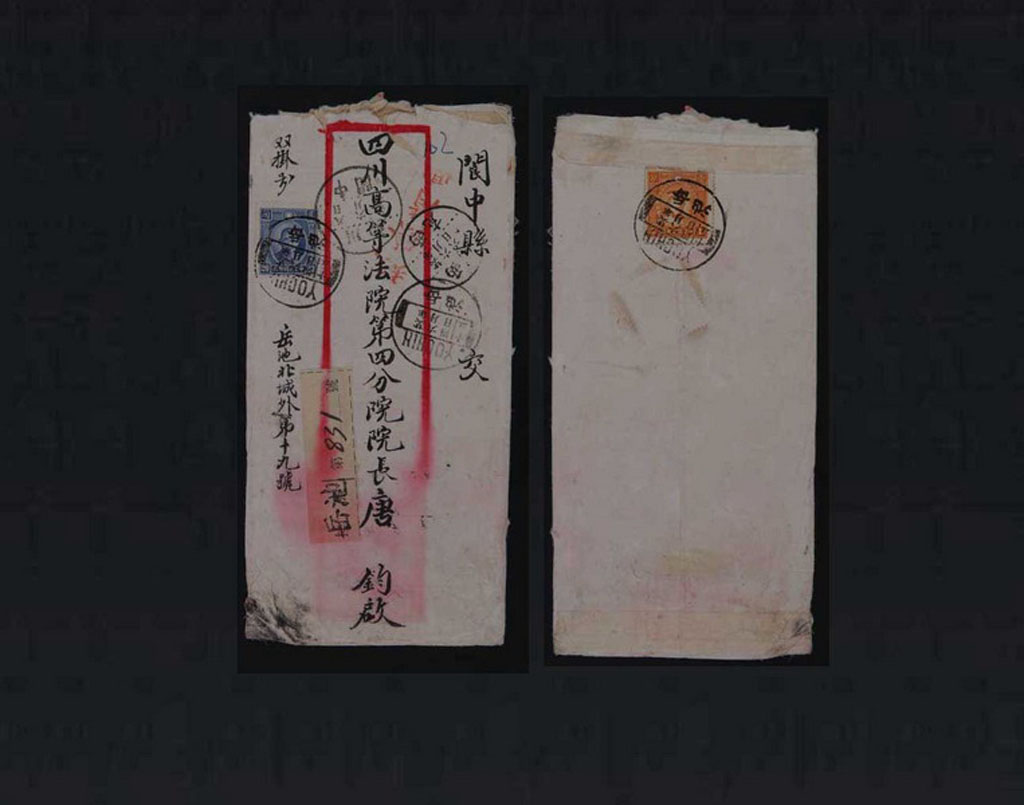 閬中縣 交
四川高等法院第四分院院長唐 鈞啟
双掛号
岳池北城外第十九號
岳池
831
62
岳池
YOCHIH
岳池
YOCHIH
岳池
YOCHIH